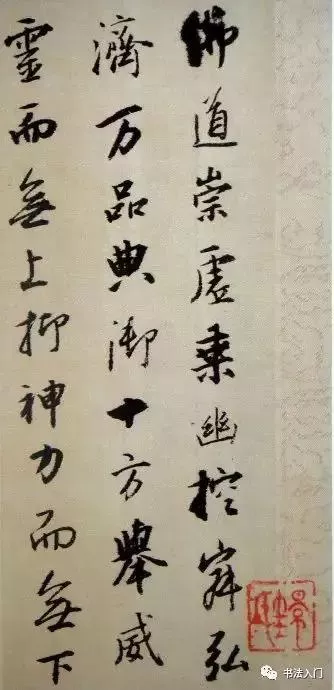 佛道崇虛乘幽控寂弘
濟万品典御十方舉威
靈而無上抑神力而無下
书法入门